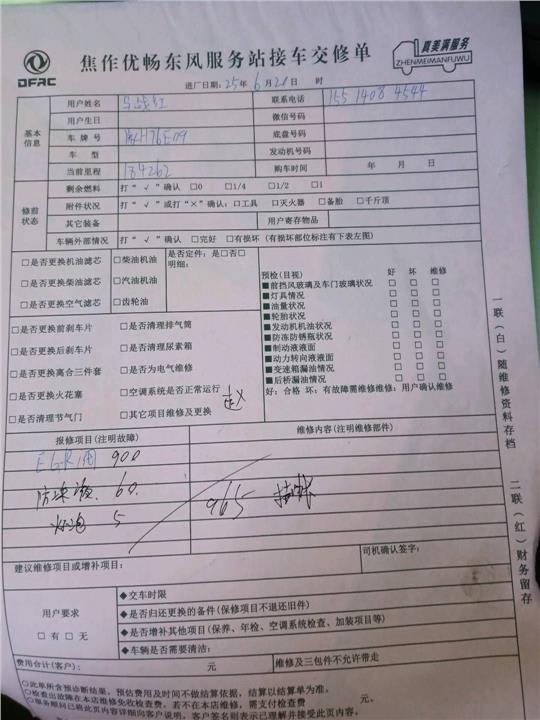 DFAC
焦作优畅东风服务站接车交修单
真美满服务
ZHENMEIMANFUWU
进厂日期：25年6月21日 时
基本信息
用户姓名
联系电话 155 1408 4544
用户生日
微信号码
车牌号 H76E09
底盘号码
车型
发动机号码
当前里程 184262
购车时间 年 月 日
修前状态
剩余燃料 打“√”确认 □0 □1/4 □1/2 □1
附件状况 打“√”或打“×”确认：□工具 □灭火器 □备胎 □千斤顶
其它装备
用户寄存物品
车辆外部情况 打“√”确认 □完好 □有损坏（有损坏部位标注有下表左图）
□是否更换机油滤芯 □柴油机油 是否定件：是□否□
明细：
□是否更换柴油滤芯 □汽油机油
□是否更换空气滤芯 □齿轮油
预检（目视） 好 坏 维修
■前挡风玻璃及车门玻璃状况 □ □ □
■灯具情况 □ □ □
■油量状况 □ □ □
■轮胎状况 □ □ □
■发动机机油状况 □ □ □
■防冻防锈瓶状况 □ □ □
■制动液液面 □ □ □
■动力转向液液面 □ □ □
■变速箱漏油情况 □ □ □
■后桥漏油情况 □ □ □
好：合格 坏：有故障需维修维修：用户确认维修
□是否更换前刹车片 □是否清理排气筒
□是否更换后刹车片 □是否清理尿素箱
□是否更换离合三件套 □是否为电气维修
□是否更换火花塞 □空调系统是否正常运行
□是否清理节气门 □其它项目维修及更换
报修项目（注明故障）
维修内容（注明维修部件）
EGR阀 900
防冻液 60.
灯泡 5
965 挂账
建议维修项目或增补项目：
司机确认签字：
用户要求
□有 □无
◆交车时限
◆是否归还更换的备件（保修项目不退还旧件）
◆是否增补其他项目（保养、年检、空调系统检查、加装项目等）
◆车辆是否需要清洁：
费用合计（客户）： 元
维修及三包件不允许带走
○此单所含预诊断结果，预估费用及时间不做结算依据，结算以结算单为准。
○检查出故障在本店维修免收检查费，若不在本店维修，需支付检查费 元。
○服务顾问已将此页内容详细向客户说明，客户签名则表示已理解并接受此页内容。
一联（白）随维修资料存档
二联（红）财务留存